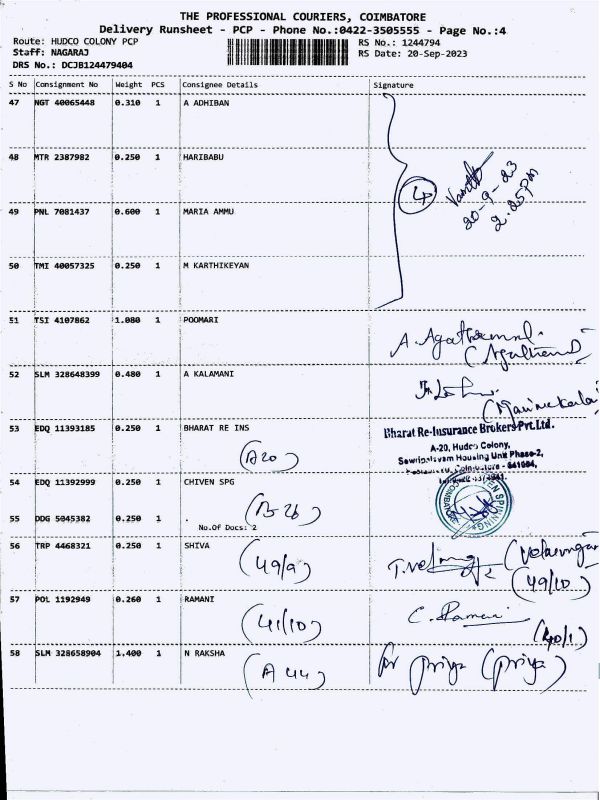 THE PROFESSIONAL COURIERS, COIMBATORE
Delivery Runsheet - PCP - Phone No.:0422-3505555 - Page No.:4
Route: HUDCO COLONY PCP
Staff: NAGARAJ
DRS No.: DCJB124479404
RS No.: 1244794
RS Date: 20-Sep-2023
S No Consignment No Weight PCS Consignee Details Signature
47 NGT 40065448 0.310 1 A ADHIBAN
48 MTR 2387982 0.250 1 HARIBABU
4
20-9-23
2.25pm
49 PNL 7081437 0.600 1 MARIA AMMU
50 TMI 40057325 0.250 1 M KARTHIKEYAN
51 TSI 4107862 1.080 1 POOMARI
52 SLM 328648399 0.480 1 A KALAMANI
53 EDQ 11393185 0.250 1 BHARAT RE INS
(A20)
Bharat Re-Insurance Brokers Pvt.Ltd.
A-20, Hudco Colony,
Sowripalayam Housing Unit Phase-2,
54 EDQ 11392999 0.250 1 CHIVEN SPG
(B-26)
55 DDG 5045382 0.250 1 .
No.Of Docs: 2
56 TRP 4468321 0.250 1 SHIVA
(49/9)
(49/10)
57 POL 1192949 0.260 1 RAMANI
(41/10)
C. Ramani
(40/1)
58 SLM 328658904 1.400 1 N RAKSHA
(A 44)
for priya (priya)